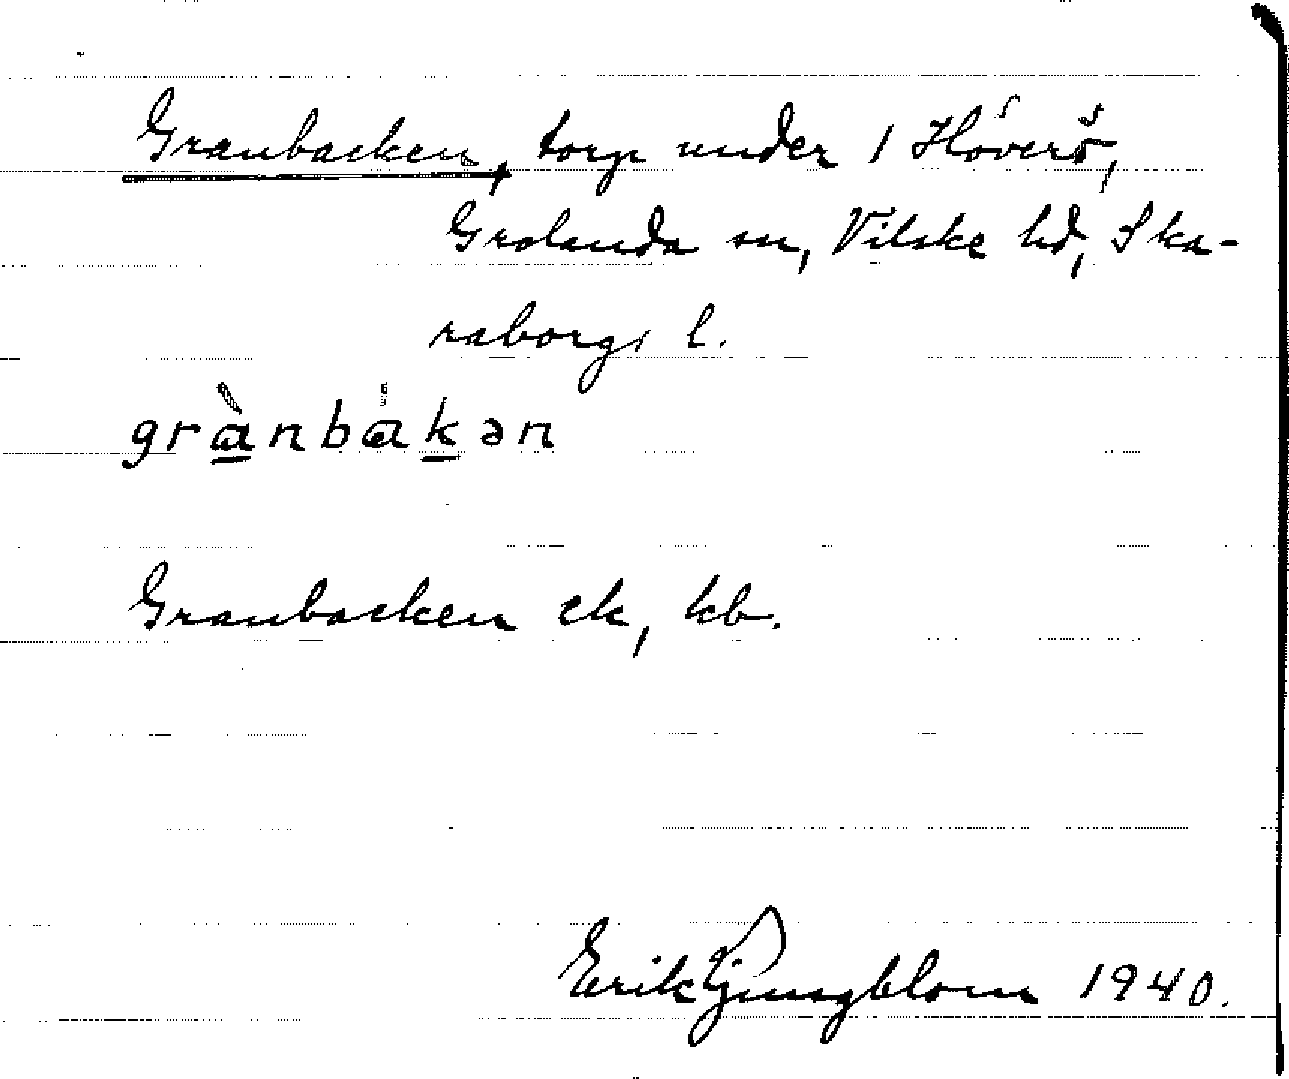 Granbacken, torp under 1 Höverö,
Grolanda sn, Vilske hd, Ska-
raborgs l.
grànbákən
Granbacken ek, kb.
Erik Ljungblom 1940.